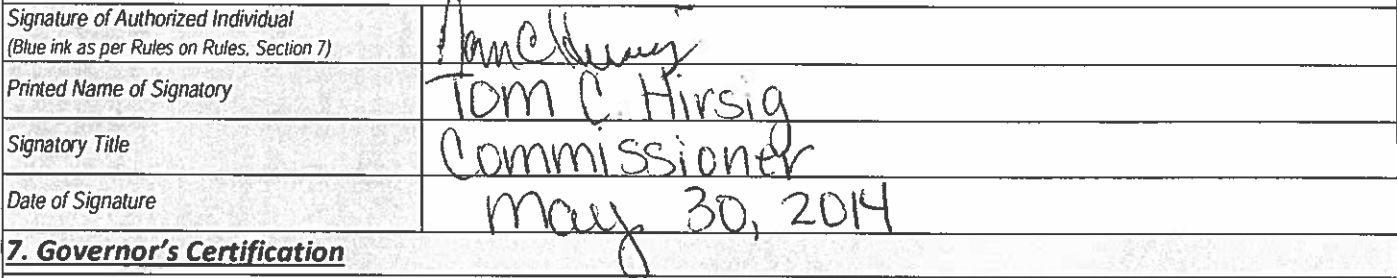 Signature of Authorized Individual
(Blue ink as per Rules on Rules, Section 7)
Printed Name of Signatory Tom C. Hirsig
Signatory Title Commissioner
Date of Signature May 30, 2014
7. Governor's Certification